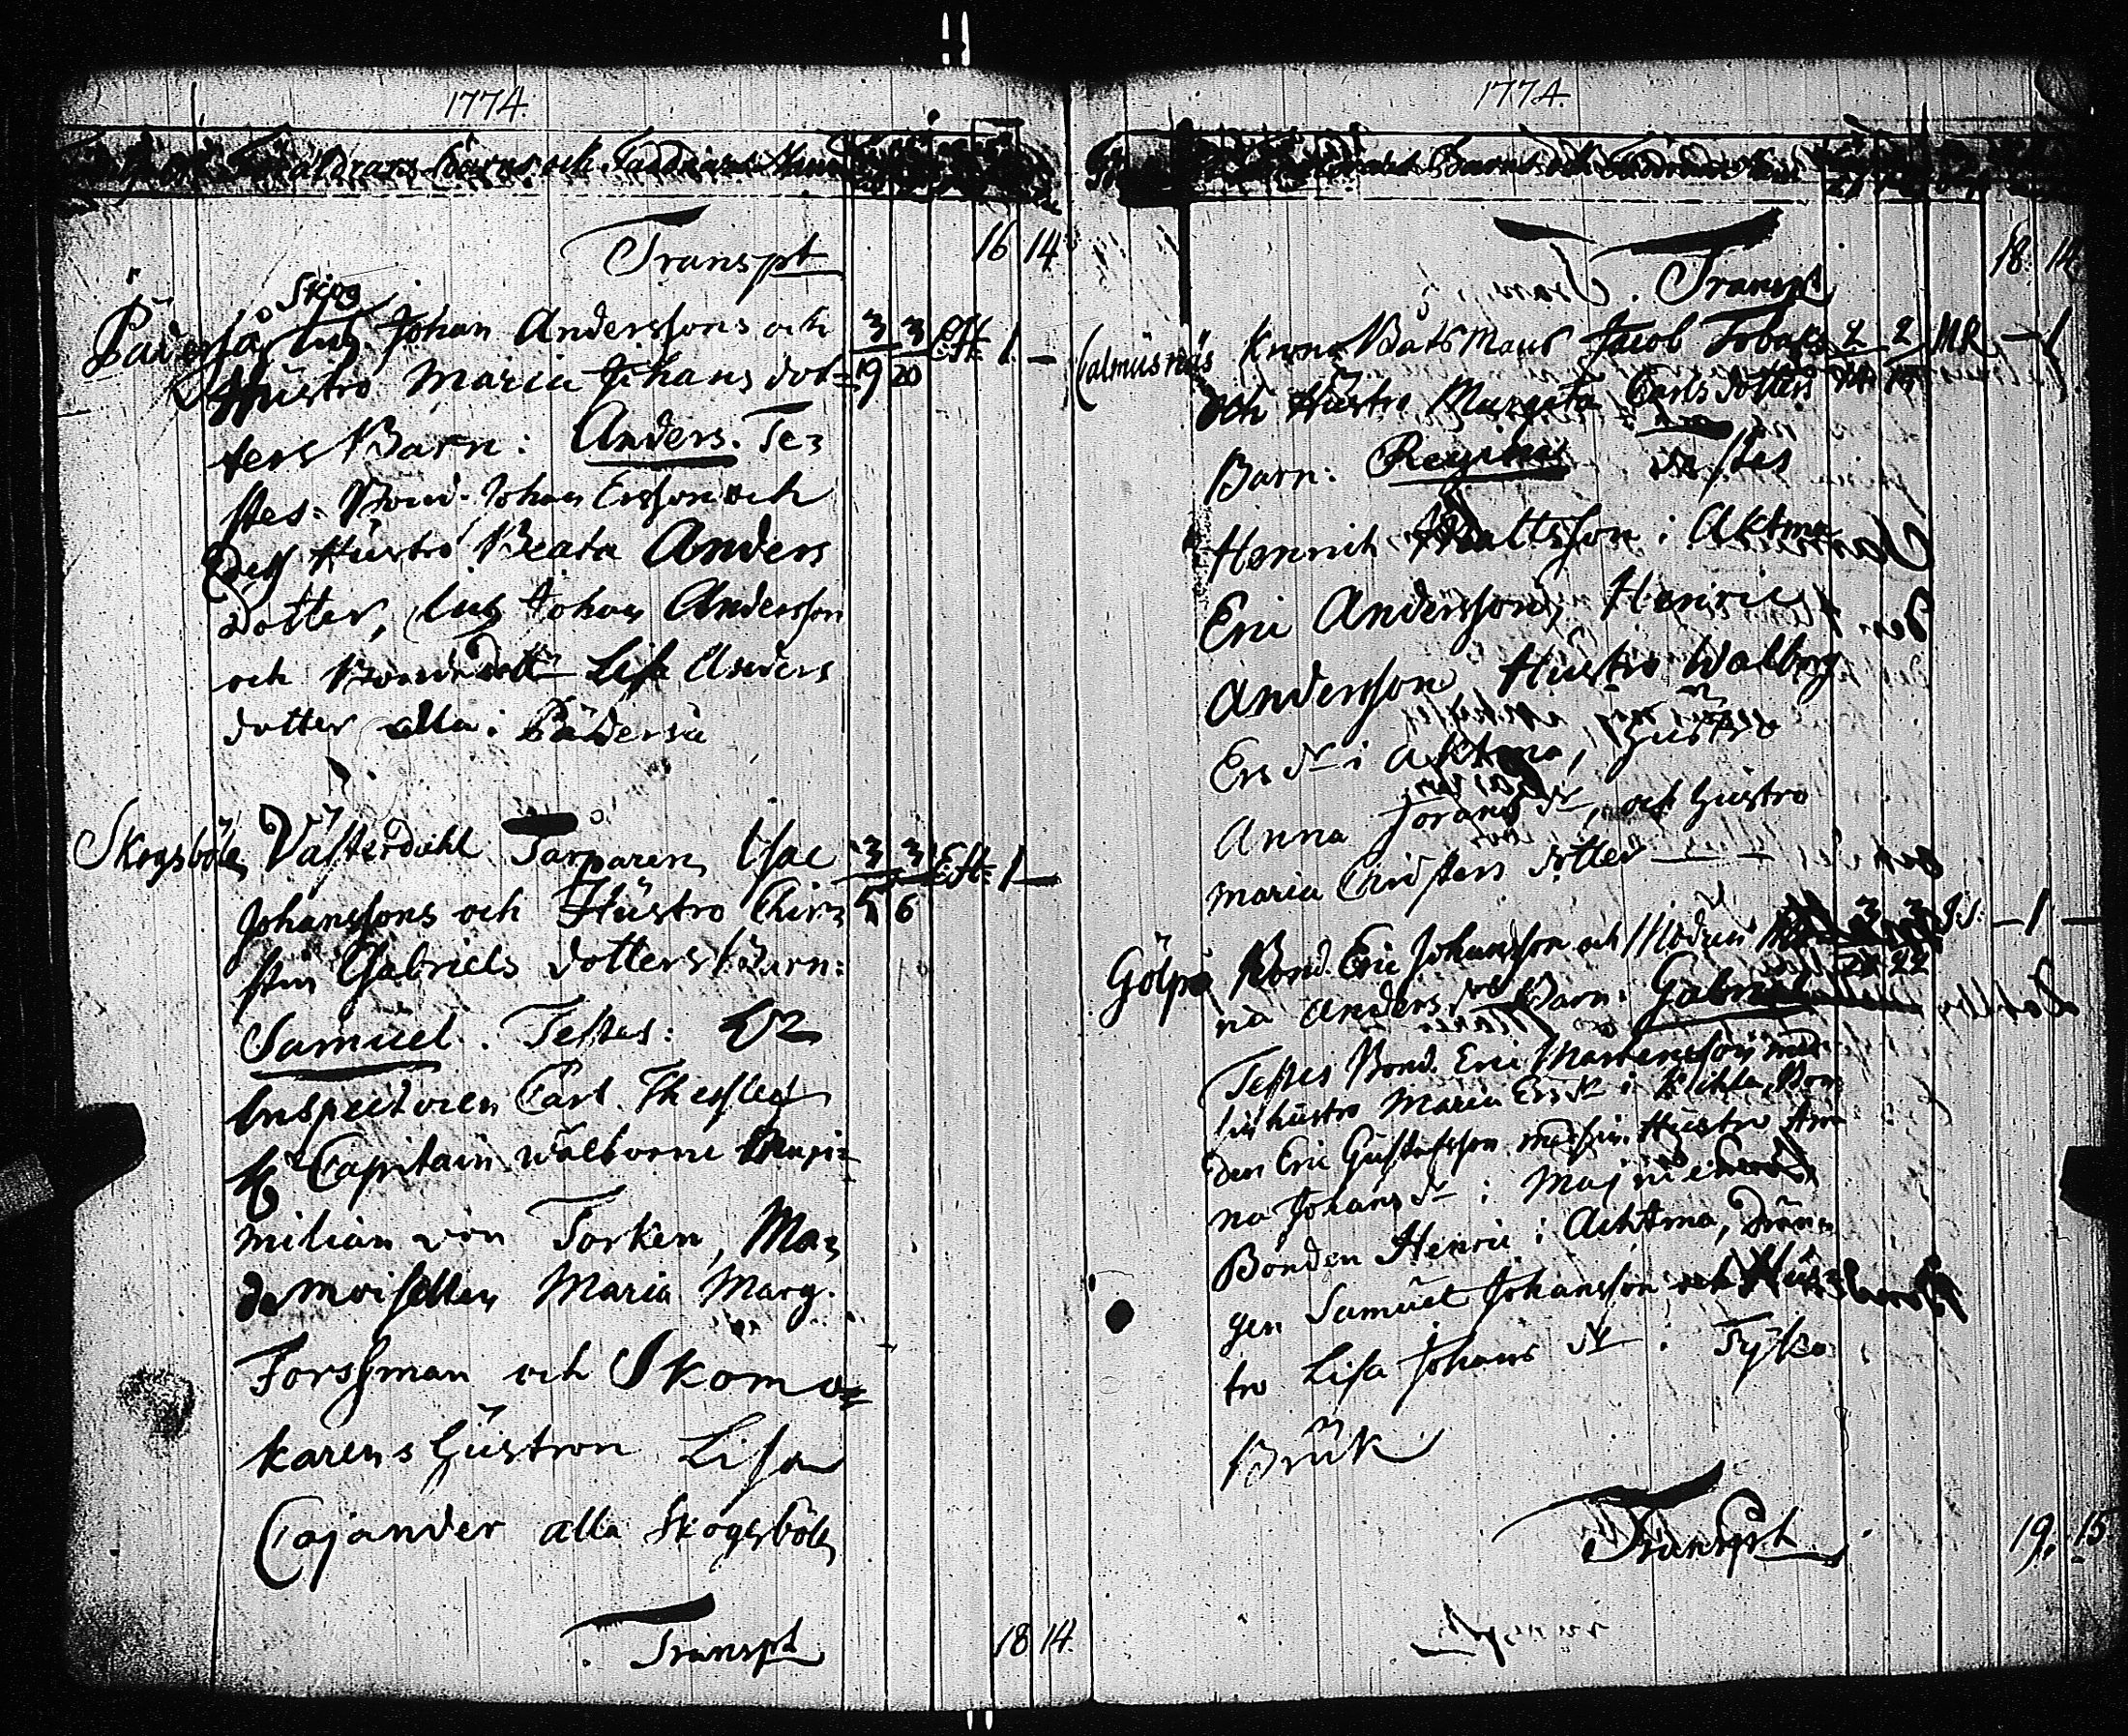 1774.
Föräldrars Barns och Faddrars Namn
Transpt 16 14
Skog
Päderså Inh. Johan Anderssons och 3 3 Eft 1 —
Hüstro Maria Johans dot= 19 20
ters Barn: Anders. Te=
stes: Bond. Johan Ersson och
Dess Hüstro Beata Anders
Dotter, Inh Johan Andersson
och Bond dottr Lisa Anders
dotter alla i Päderså
Skogsböle Västerdahl Tarparen Isac 3 3 Eft 1 —
Johanssons och Hüstro Chir= 5 6
stin Gabriels dotters Barn:
Samüel. Testes:
Inspectoren Carl Thesslef
Capitain Wälborne Maxi=
milian von Torken, Ma=
demoisellen Maria Marg.
Forssman och Skoma=
karens Hüstron Lisa
Cajander alla Skogsböle
Transpt 18 14.
1774.
Barns och Faddrars
Transpt 18 14
Calmüsnäs Krono Båts Mans Jacob Tobaks 2 2 — 1
och Hüstro Margeta Carls dotters 14 15
Barn: Regina testes
Henrich Mattsson i Aktma
Eric Andersson, Henric
Andersson, Hüstro Walborg
Ers dr i Aktma, Hüstro
Anna Jorans dr, och Hüstro
Maria Christers dotter —
Gölpä Bond. Eric Johansson och Modren 3 3 — 1 —
na Anders dr Barn: Gabriel 22
Testes Bond. Eric Mårtensson med
sin hüstro Maria Ers dr i Bon=
den Eric Güstafsson med sin Hüstro An=
na Johans dr i
Bonden Henric i Achtma, Drän=
gen Samüel Johansson och Hüs=
tro Lisa Johans dr i Tyko
Brük
Transpt. 19. 15